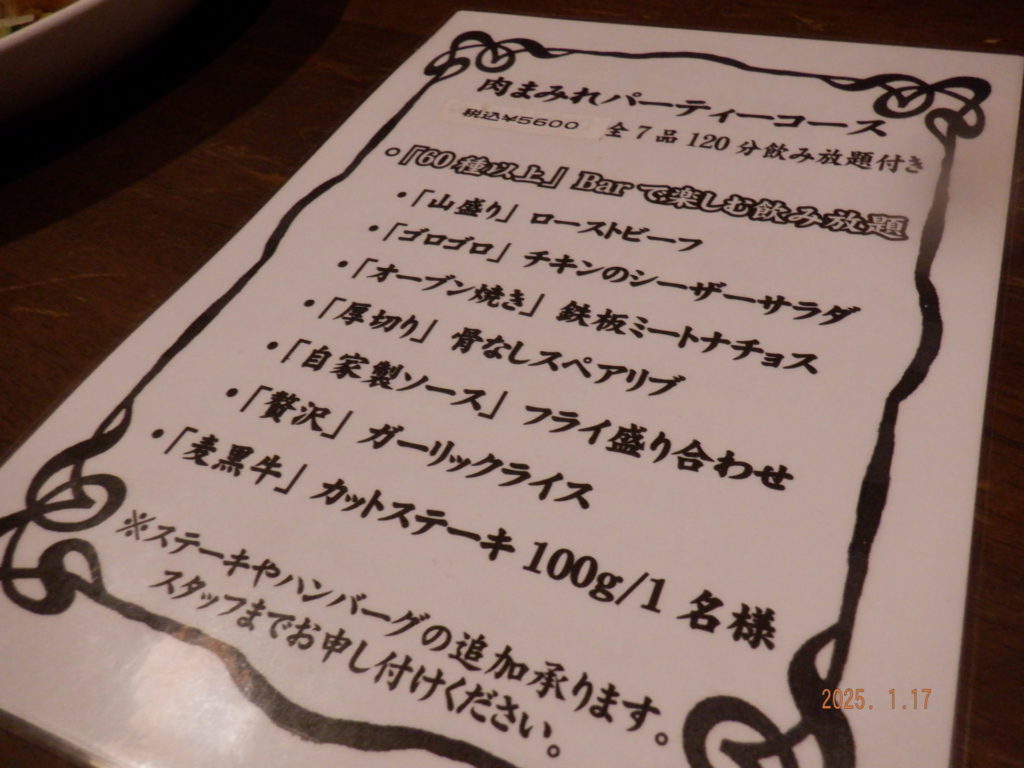 肉まみれパーティーコース
税込¥5600 全7品120分飲み放題付き
◦『60種以上』Barで楽しむ飲み放題
・「山盛り」ローストビーフ
・「ゴロゴロ」チキンのシーザーサラダ
・「オーブン焼き」鉄板ミートナチョス
・「厚切り」骨なしスペアリブ
・「自家製ソース」フライ盛り合わせ
・「贅沢」ガーリックライス
・「麦黒牛」カットステーキ100g/1名様
※ステーキやハンバーグの追加承ります。
スタッフまでお申し付けください。
2025. 1.17